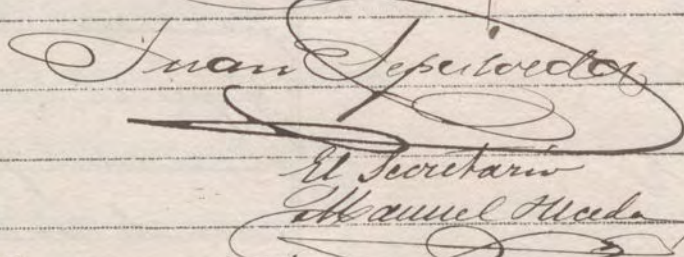 Juan Sepulveda
El Secretario
Manuel